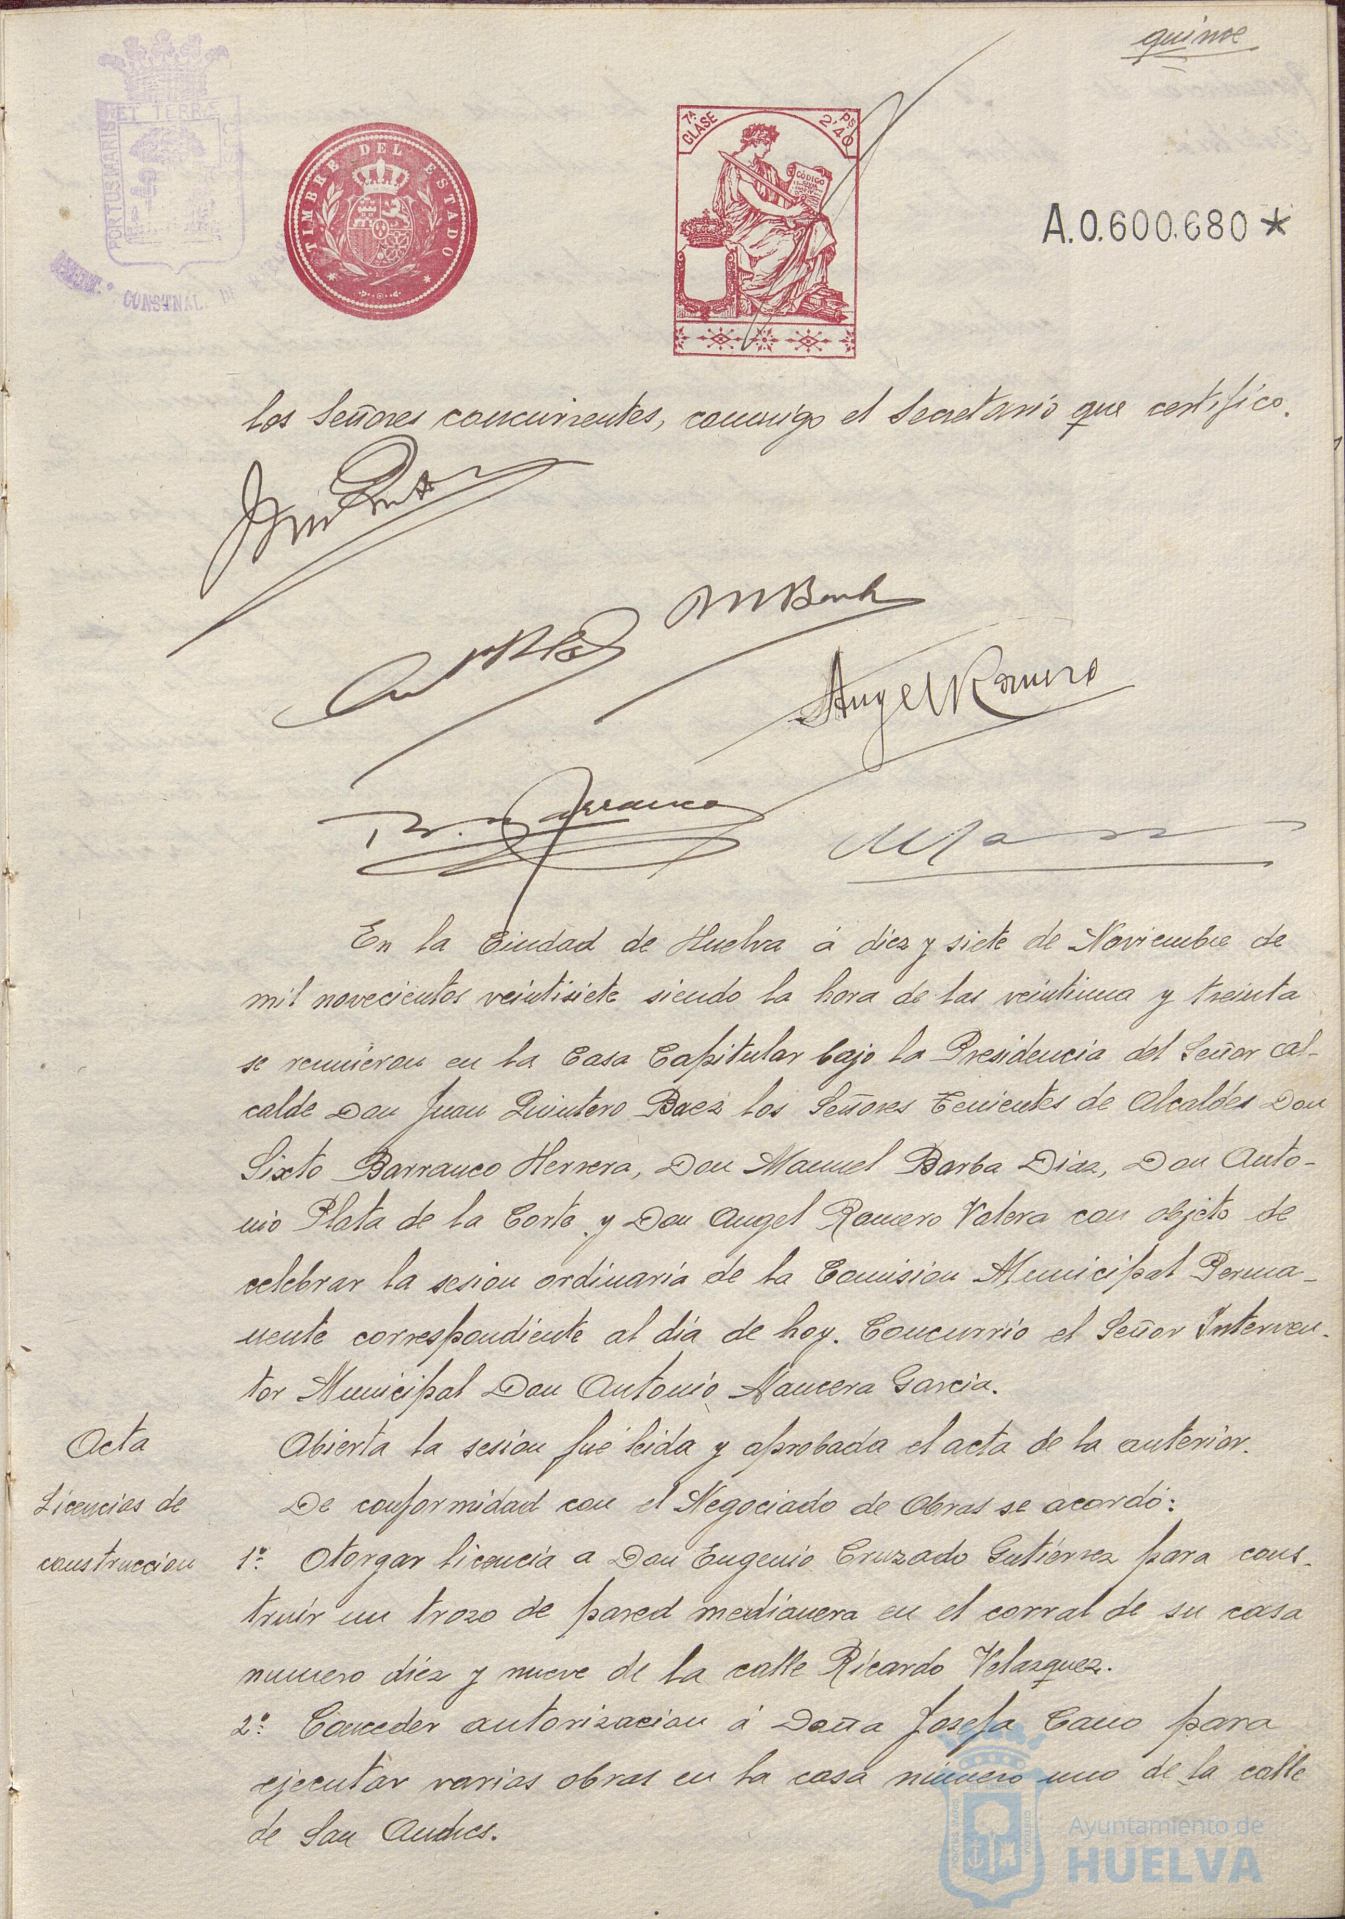 quince
PORTUS MARIS ET TERRÆ CUSTO
CONSTNAL. DE
TIMBRE DEL ESTADO
7ª CLASE
PS 2'40
CÓDIGO
A.0.600.680*
los Señores concurrentes, conmigo el Secretario que certifico.
Angel Romero
En la Ciudad de Huelva á diez y siete de Noviembre de
mil novecientos veintisiete siendo la hora de las veintiuna y treinta
se reunieron en la Casa Capitular bajo la Presidencia del Señor Al-
calde Don Juan Quintero Baez los Señores Tenientes de Alcaldes Don
Sixto Barranco Herrera, Don Manuel Barba Diaz, Don Anto-
nio Plata de la Corte y Don Angel Romero Valera con objeto de
celebrar la sesion ordinaria de la Comision Municipal Perma-
nente correspondiente al dia de hoy. Concurrio el Señor Interven-
tor Municipal Don Antonio Mancera Garcia.
Acta
Abierta la sesion fué leida y aprobada el acta de la anterior.
Licencias de
construccion
De conformidad con el Negociado de Obras se acordó:
1º Otorgar licencia a Don Eugenio Cruzado Gutiérrez para cons-
truir un trozo de pared medianera en el corral de su casa
numero diez y nueve de la calle Ricardo Velazquez.
2º Conceder autorizacion á Doña Josefa Cano para
ejecutar varias obras en la casa número uno de la calle
de San Andres.
Ayuntamiento de
HUELVA